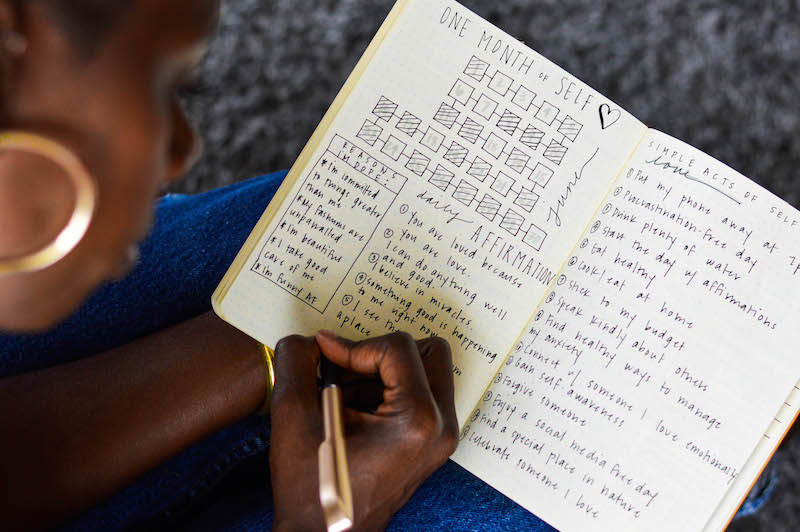 ONE MONTH OF SELF ♡
june
REASONS
I'M DOPE:
*I'm committed
to things greater
than me
*My fashums are
unpavalled
*Im beautiful
*I take good
care of me
*im funny AF
daily AFFIRMATION
① You are loved because
you are love.
② I can do anything well
and good.
③ I believe in miracles.
④ something good is happening
to me right now
⑤ I see the
a place
SIMPLE ACTS OF SELF
love
Put my phone away at
Procrastination-free day
Drink plenty of water
Start the day w/ affirmations
Eat healthy
Cook/eat at home
Stick to my budget
Speak kindly about others
Find healthy ways to manage
my anxiety
Connect w/ someone I love emotionally
Gain self-awareness
Forgive someone
Enjoy a social media free day
Find a special place in nature
Celebrate someone I love